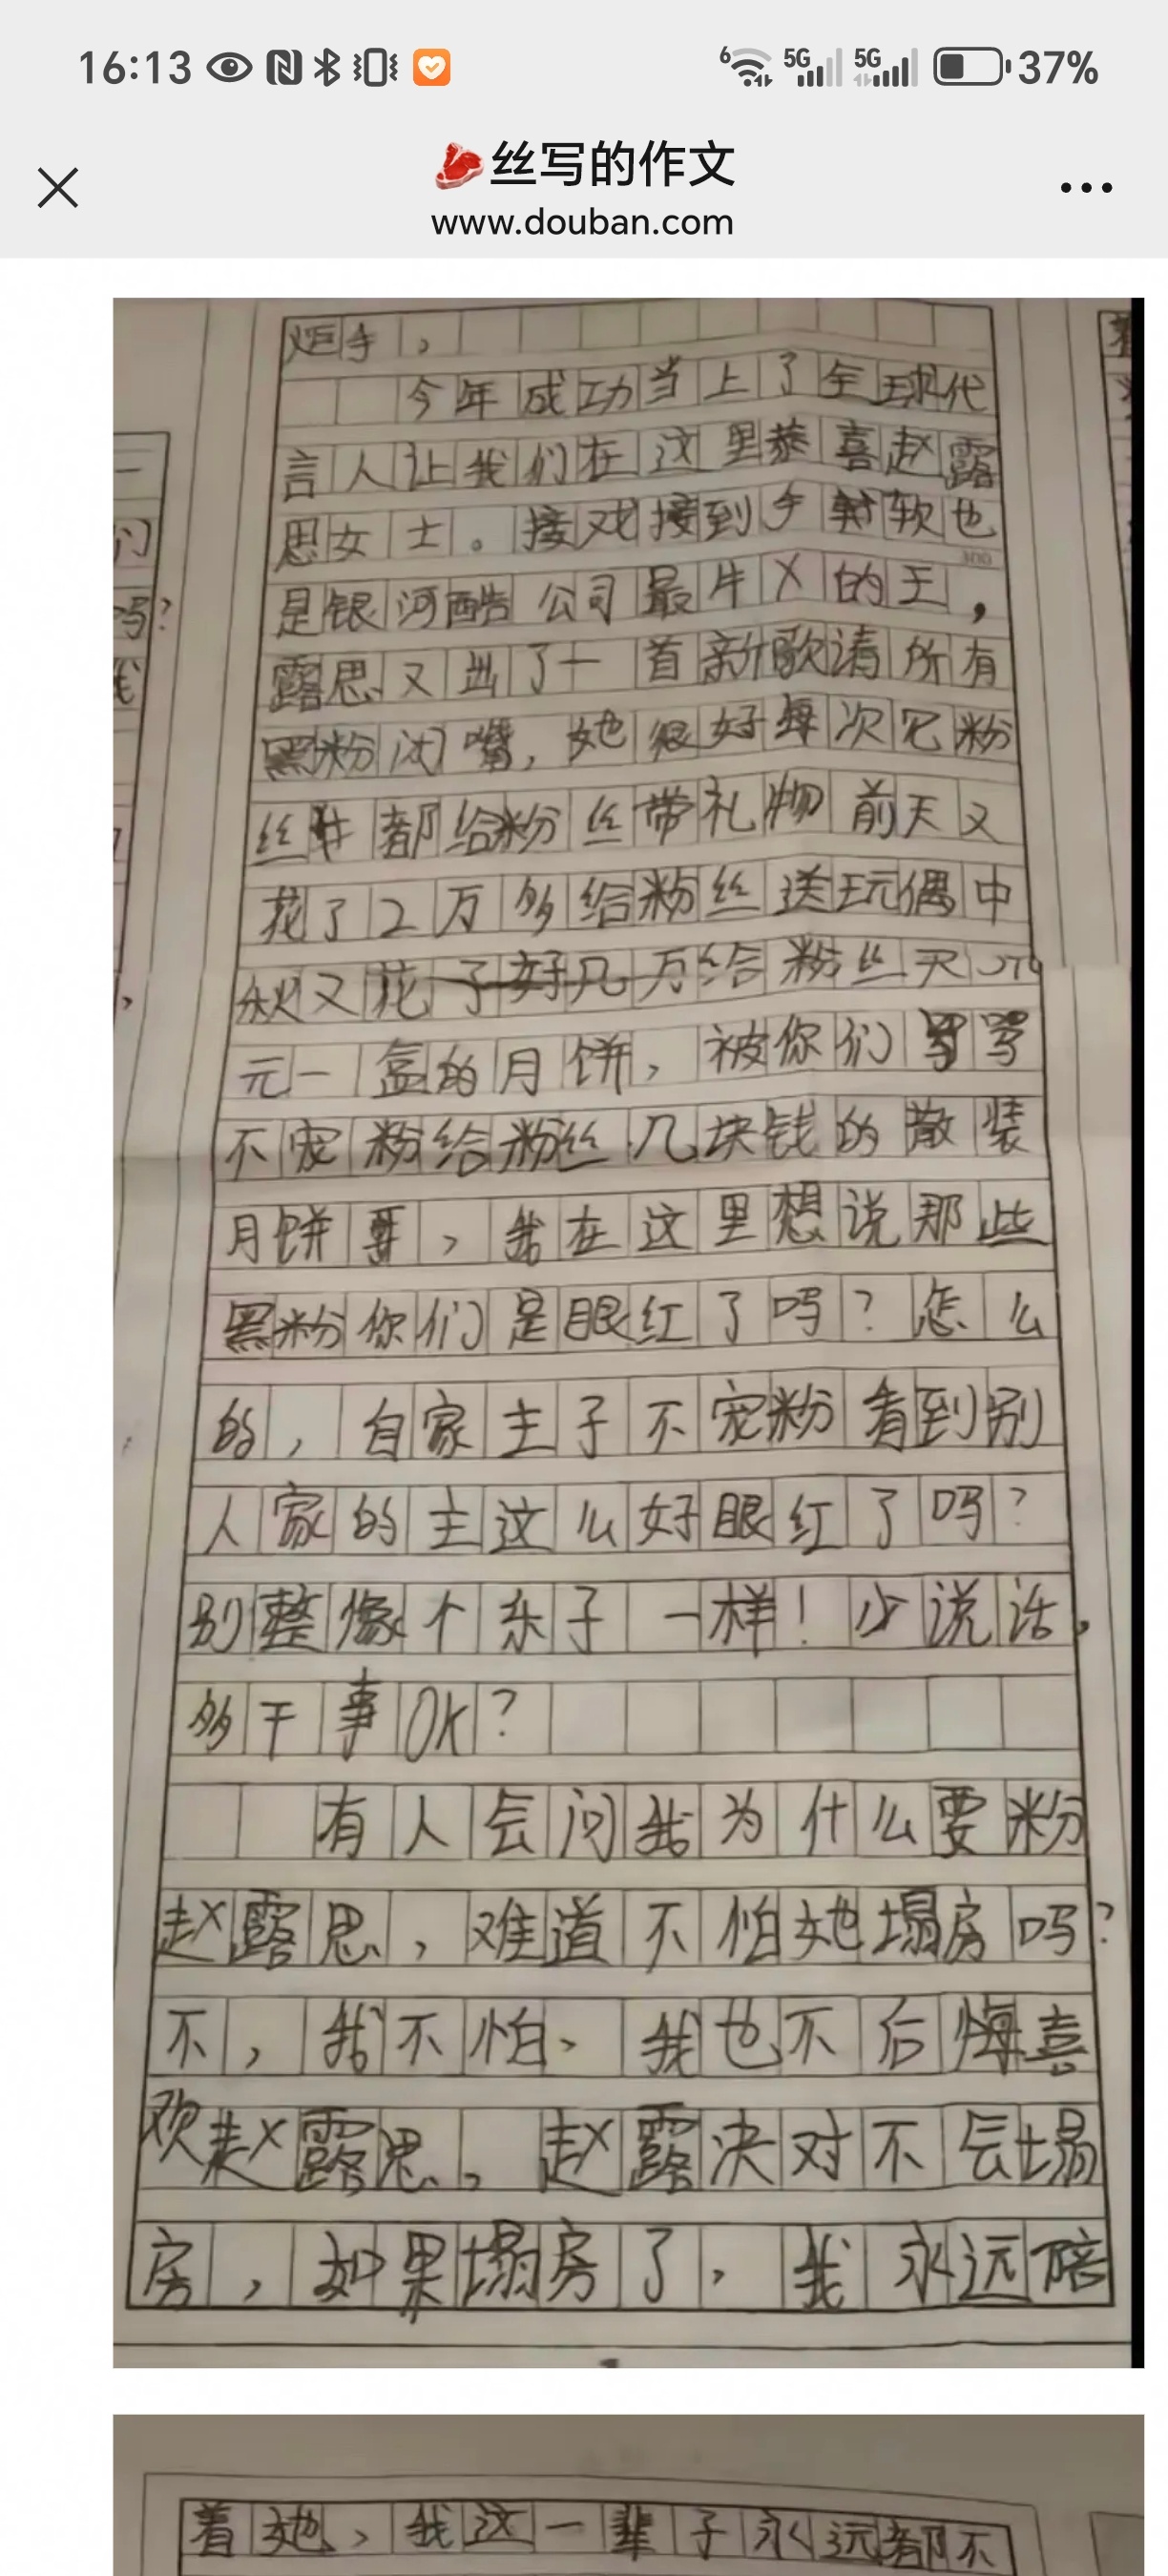 16:13
6 5G 5G 37%
丝写的作文
www.douban.com
炬手，
今年成功当上了全球代
言人让我们在这里恭喜赵露
思女士。接戏接到手射软也
是银河酷公司最牛X的王，
露思又出了一首新歌请所有
黑粉闭嘴，她很好每次见粉
丝都给粉丝带礼物前天又
花了2万多给粉丝送玩偶中
秋又花了好几万给粉丝买
元一盒的月饼，被你们骂骂
不宠粉给粉丝几块钱的散装
月饼，我在这里想说那些
黑粉你们是眼红了吗？怎么
的，自家主子不宠粉看到别
人家的主这么好眼红了吗？
别整像个东子一样！少说话，
多干事OK？
有人会问我为什么要粉
赵露思，难道不怕她塌房吗？
不，我不怕、我也不后悔喜
欢赵露思，赵露决对不会塌
房，如果塌房了，我永远陪
着她、我这一辈子永远都不
一
们
吗？
我
，
着